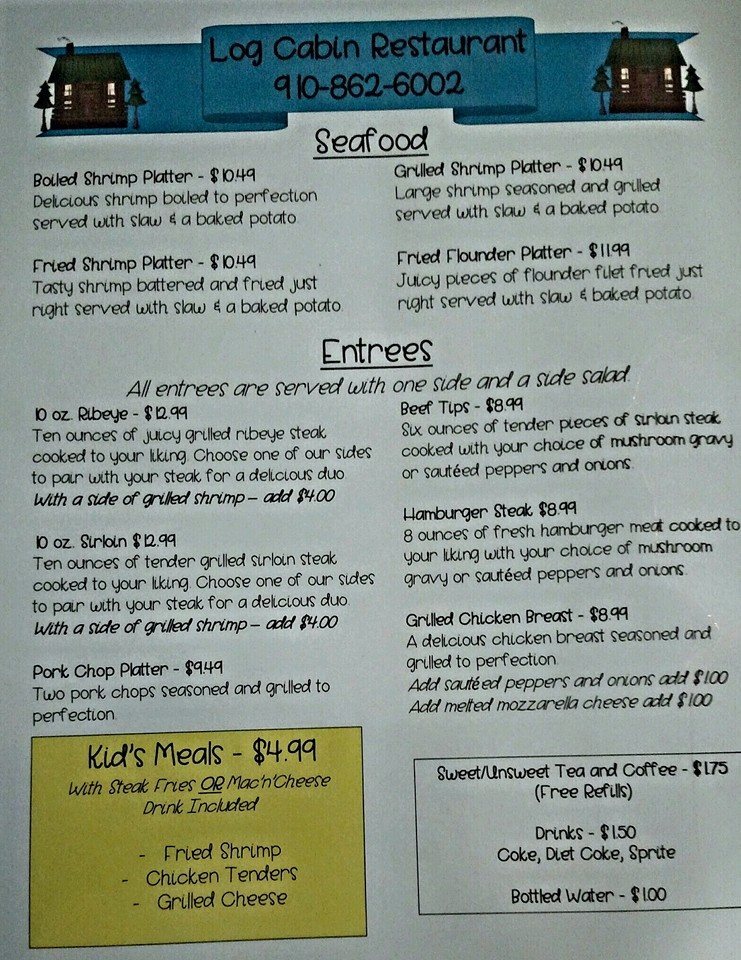 Log Cabin Restaurant
910-862-6002
Seafood
Boiled Shrimp Platter - $10.49
Delicious shrimp boiled to perfection
served with slaw & a baked potato.
Fried Shrimp Platter - $10.49
Tasty shrimp battered and fried just
right served with slaw & a baked potato.
Grilled Shrimp Platter - $10.49
Large shrimp seasoned and grilled
served with slaw & a baked potato.
Fried Flounder Platter - $11.99
Juicy pieces of flounder filet fried just
right served with slaw & baked potato.
Entrees
All entrees are served with one side and a side salad.
10 oz. Ribeye - $12.99
Ten ounces of juicy grilled ribeye steak
cooked to your liking. Choose one of our sides
to pair with your steak for a delicious duo.
With a side of grilled shrimp – add $4.00
10 oz. Sirloin $12.99
Ten ounces of tender grilled sirloin steak
cooked to your liking. Choose one of our sides
to pair with your steak for a delicious duo.
With a side of grilled shrimp – add $4.00
Pork Chop Platter - $9.49
Two pork chops seasoned and grilled to
perfection.
Beef Tips - $8.99
Six ounces of tender pieces of sirloin steak
cooked with your choice of mushroom gravy
or sautéed peppers and onions.
Hamburger Steak $8.99
8 ounces of fresh hamburger meat cooked to
your liking with your choice of mushroom
gravy or sautéed peppers and onions.
Grilled Chicken Breast - $8.99
A delicious chicken breast seasoned and
grilled to perfection.
Add sautéed peppers and onions add $1.00
Add melted mozzarella cheese add $1.00
Kid's Meals - $4.99
With Steak Fries OR Mac'n'Cheese
Drink Included
- Fried Shrimp
- Chicken Tenders
- Grilled Cheese
Sweet/Unsweet Tea and Coffee - $1.75
(Free Refills)
Drinks - $1.50
Coke, Diet Coke, Sprite
Bottled Water - $1.00